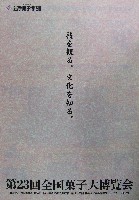 を観る。文化を知る。
第23回全国菓子大博覧会